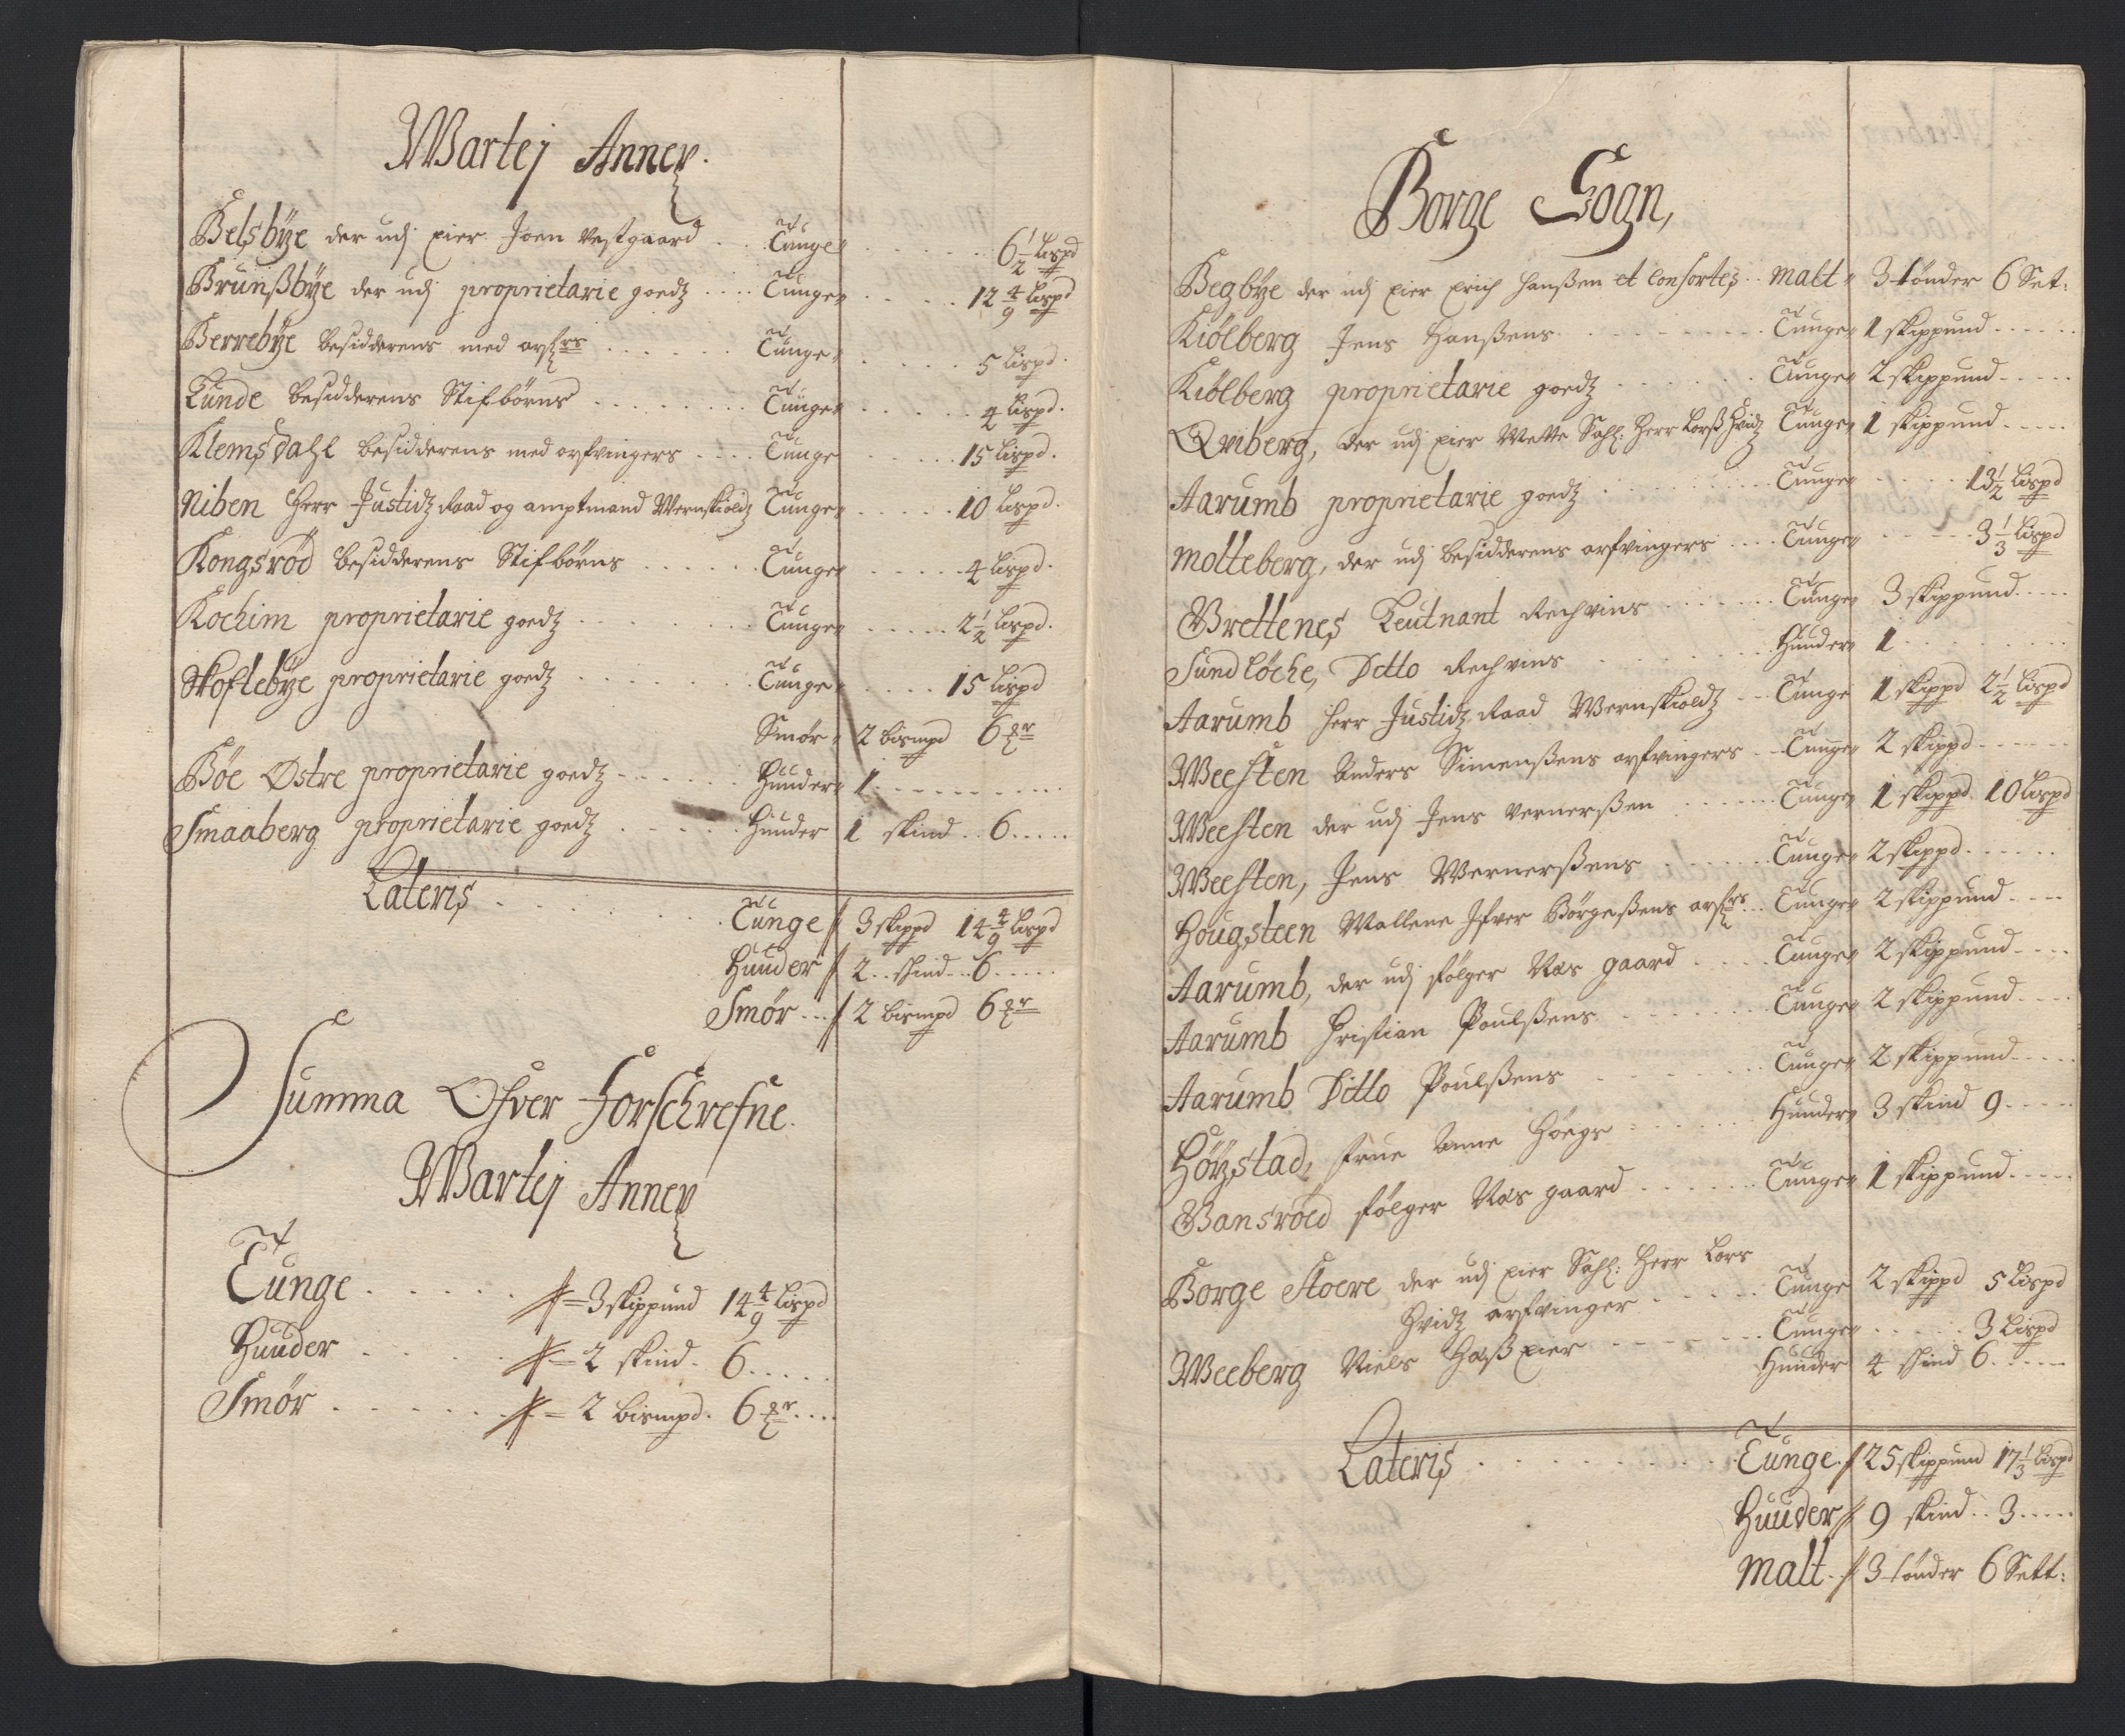 Wartej Anner.
Belsbÿe der udj eier Joen Vestgaard . . Tunge 6 1/2 Lispd
Brunßbÿe der udj proprietarie goedz . . . . Tunge 12 4/9 Lispd
Berrebÿe besidderens med arf: rs . . . . . . Tunge 5 Lispd.
Lunde besidderens Stifbørns . . . . . . . . Tunge 4 Lispd.
Klemsdahl besidderens med arfvingers . . . . Tunge 15 Lispd.
Niben Herr Justidz Raad og amptmand Wernskioldz Tunge 10 Lispd.
Kongsrød besidderens Stifbørns . . . . . . Tunge 4 Lispd.
Kochim proprietarie goedz . . . . . . . . Tunge 2 1/2 Lispd.
Skoftebÿe proprietarie goedz . . . . . . . Tunge 15 Lispd
Smør 2 bismpd 6 mr
Bøe Østre proprietarie goedz . . . . . . Huuder 1 . . . . .
Smaaberg proprietarie goedz . . . . . . Huuder 1 skind . . 6 . . . . .
Lateris . . . . . . . . Tunge 3 skippd 14 4/9 Lispd
Huuder 2 . . skind . . 6 . . . . .
Smør . . . 2 bismpd 6 mr
Summa Ofver Forschrefne.
Wartej Anner
Tunge . . . . . . 3 skippund 14 4/9 Lispd
Huuder . . . . . . 2 skind . 6 . . . . .
Smør . . . . . . 2 bismpd. 6 mr . . . .
Borge Sogn,
Begbÿe der udj eier Erich Hanßen et Consortes . . Malt 3 tønder 6 Set:
Kiølberg Jens Hanßens . . . . . . . . Tunge 1 skippund . . . . .
Kiølberg proprietarie goedz . . . . . . Tunge 2 skippund . . . . .
Qviberg, der udj eier Mette Sahl: Herr Larß Hvidz Tunge 1 skippund . . . . .
Aarumb proprietarie goedz . . . . . . . . Tunge 13 1/2 Lispd
Molteberg, der udj besidderens arfvingers . . . . Tunge 3 1/3 Lispd
Brettenes Leutnant Rechvins . . . . . . . Tunge 3 skippund . . . . .
Sundløche, Ditto Rechvins . . . . . . . . Huuder 1 . . . . .
Aarumb Herr Justidz Raad Wernskioldz . . . Tunge 1 skippd 2 1/2 Lispd
Weesten Anders Simenßens arfvingers . . . Tunge 2 skippd . . . . .
Weesten der udj Jens Vernerßen . . . . . . Tunge 1 skippd 10 Lispd
Weesten, Jens Wernerßens . . . . . . . Tunge 2 skippd . . . . .
Hougsteen Mallene Ifver Børgeßens arf: rs . . Tunge 2 skippund . . . .
Aarumb, der udj følger Næs gaard . . . . Tunge 2 skippund . . . .
Aarumb Cristian Poulßens . . . . . . . Tunge 2 skippund . . . .
Aarumb Ditto Poulßens . . . . . . . . Tunge 2 skippund . . . . .
Høÿstad, Frue Anne Høegs . . . . . . . Huuder 3 skind 9 . . . . .
Bansrøed følger Næs gaard . . . . . . . Tunge 1 skippund . . . . .
Borge Stoere der udj eier Sahl: Herr Lars
Hvidz arfvinger . . . . . . Tunge 2 skippd 5 Lispd
Weeberg Niels Haß eier . . . . . . . . Tunge 3 Lispd
Huuder 4 skind 6 . . . . .
Lateris . . . . . . . . . . Tunge 25 skippund 17 1/3 Lispd
Huuder 9 skind . . 3 . . . . .
Malt . 3 tønder 6 Sett: